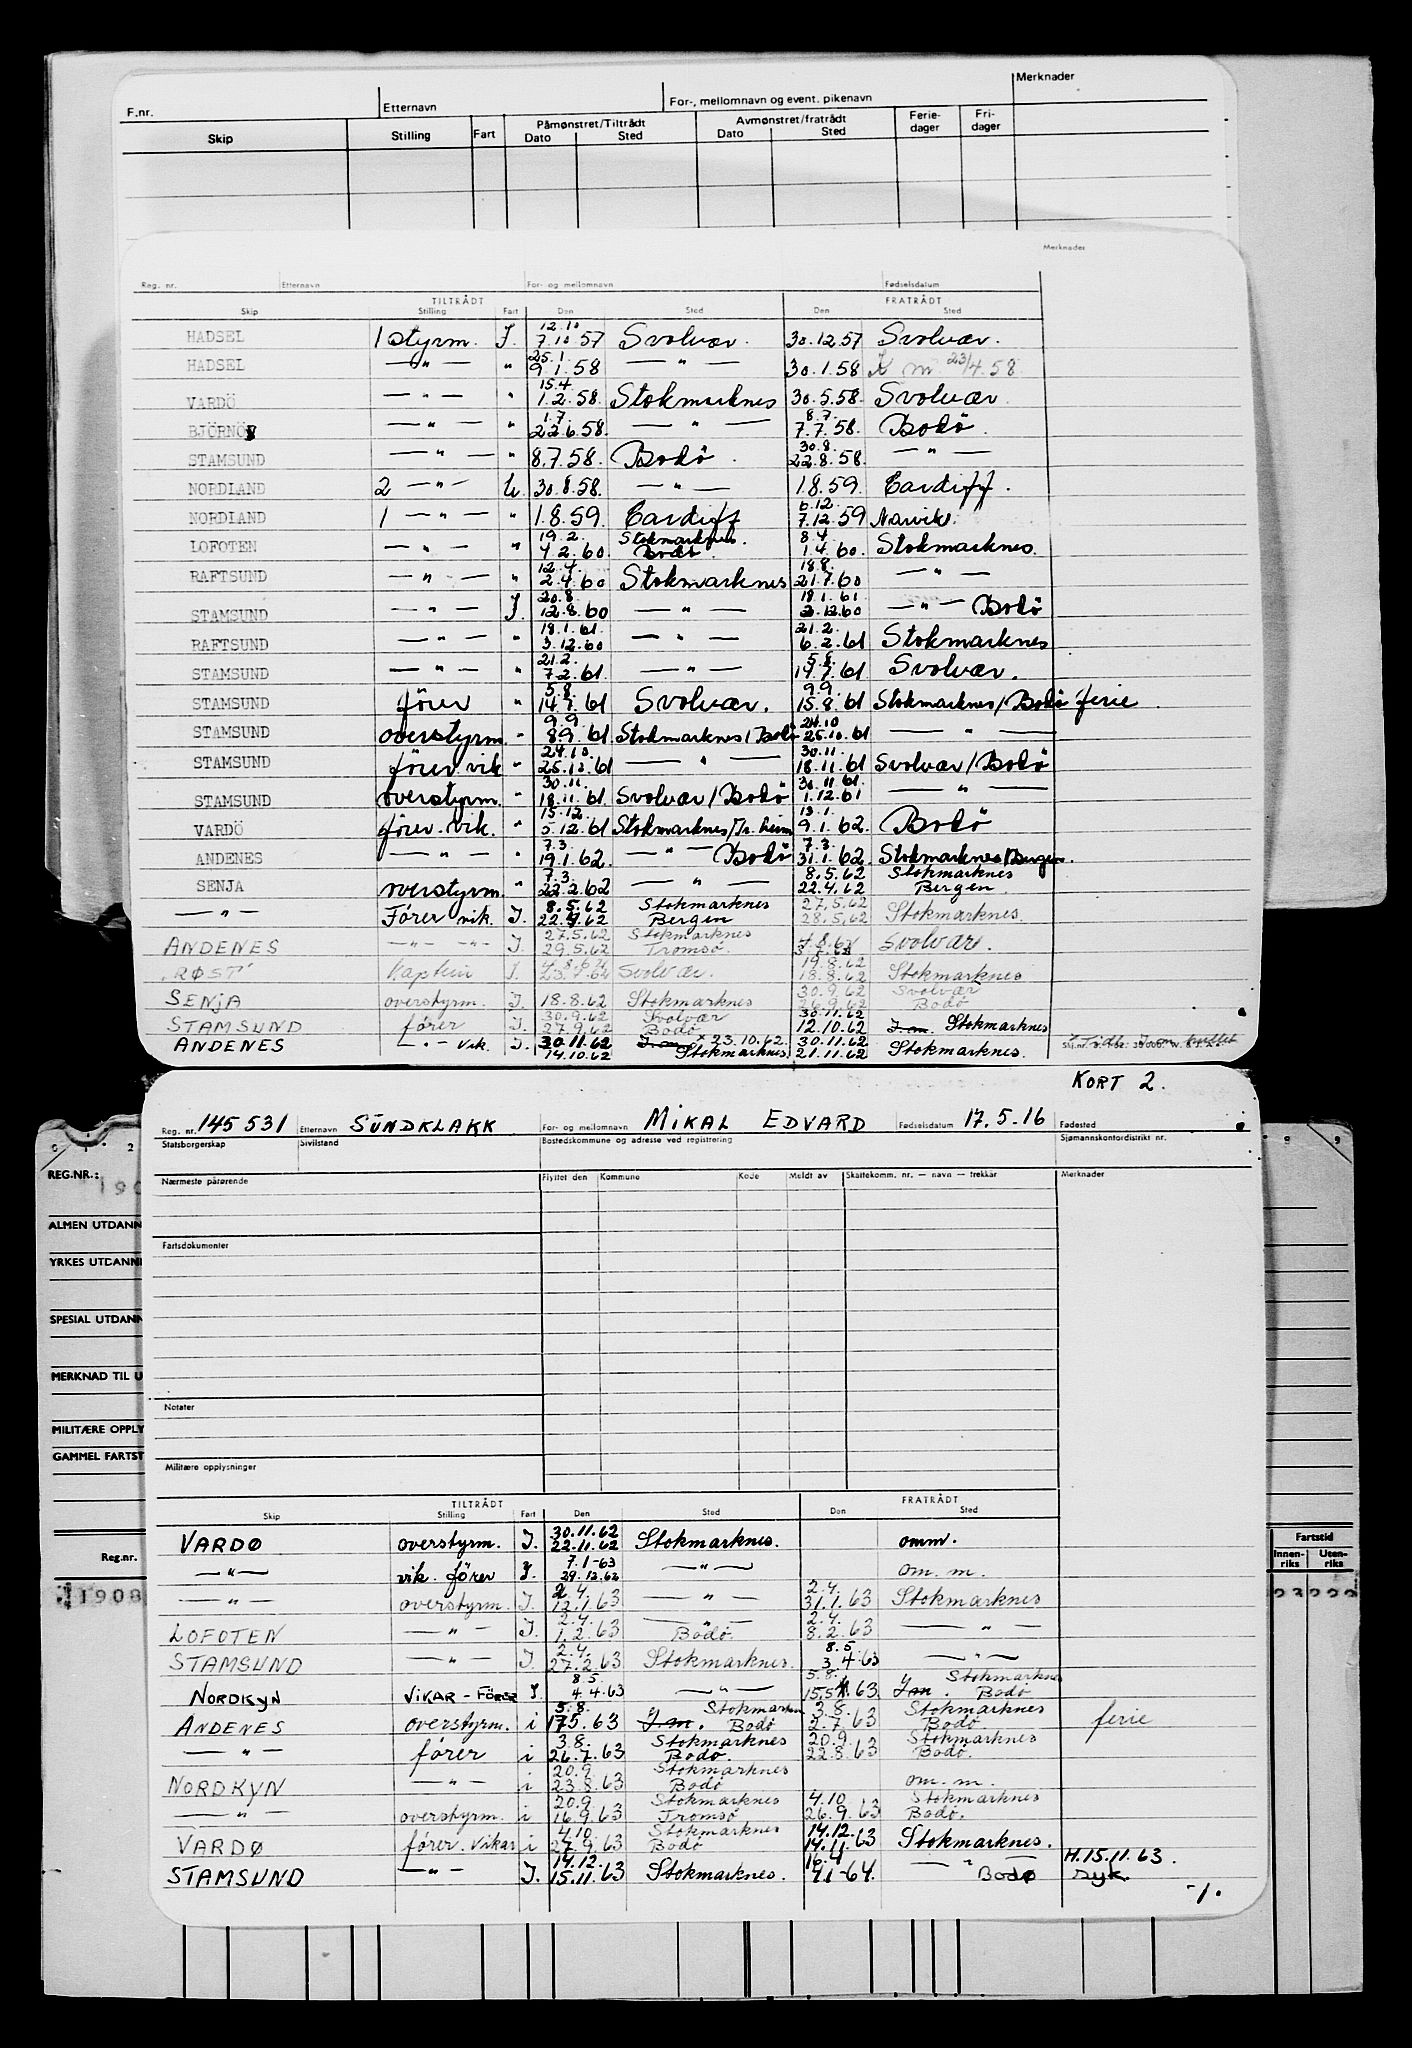 Merknader
F.nr. Etternavn For-, mellomnavn og event. pikenavn
Skip Stilling Fart Påmønstret/Tiltrådt Dato Sted Avmønstret/fratrådt Dato Sted Ferie-dager Fri-dager
Merknader
Reg. nr. Etternavn For- og mellomnavn Fødselsdatum
TILTRÅDT FRATRÅDT
Skip Stilling Fart Den Sted Den Sted
12.10
HADSEL 1 styrm. I. 7.10.57 Svolvær. 30.12.57 Svolvær.
25.1.
HADSEL — " — " 9.1.58 — " — 30.1.58 m 23/4.58
15.4
VARDÖ — " — " 1.2.58 Stokmarknes 30.5.58 Svolvær
1.7. 8.7.
BJÖRNÖY — " — " 22.6.58. — " — 7.7.58. Bodø.
30.8.
STAMSUND — " — " 8.7.58. Bodø. 22.8.58. — " —
NORDLAND 2 — " — U. 30.8.58. — " — 1.8.59. Cardiff.
6.12.
NORDLAND 1 — " — " 1.8.59. Cardiff 7.12.59 Narvik.
19.2. Stokmarknes. 8.4.
LOFOTEN — " — " 4.2.60 Bodø. 1.4.60. Stokmarknes.
12.4. 18.8.
RAFTSUND — " — " 2.4.60 Stokmarknes 21.7.60 — " —
20.8. 18.1.61
STAMSUND — " — I. 12.8.60 — " — 2.12.60 — " — Bodø
18.1.61. 21.2.
RAFTSUND — " — " 3.12.60 — " — 6.2.61 Stokmarknes
21.2. 5.8.
STAMSUND — " — " 7.2.61. — " — 14.7.61 Svolvær.
5.8. 9.9.
STAMSUND förer " 14.7.61 Svolvær. 15.8.61 Stokmarknes/Bodø ferie
9.9. 24.10
STAMSUND overstyrm. " 8.9.61 Stokmarknes/Bodø 25.10.61 — " —
24.10. 30.11.
STAMSUND förer vik " 25.10.61 — " — 18.11.61 Svolvær/Bodø
30.11. 30.11.61.
STAMSUND overstyrm. " 18.11.61. Svolvær/Bodö 1.12.61 — " —
15.12. 13.1.
VARDÖ förer.vik. " 5.12.61 Stokmarknes/Tr.heim 9.1.62. Bodö
7.3. 7.3.
ANDENES — " — " 19.1.62. — " — Bodö 31.1.62. Stokmarknes/Bergen.
7.3. 8.5.62 Stokmarknes
SENJA overstyrm. " 22.2.62 — " — 22.4.62 Bergen.
8.5.62 Stokmarknes 27.5.62
— " — Förer vik. I. 22.4.62 Bergen 28.5.62 Stokmarknes.
27.5.62 Stokmarknes
ANDENES — " — " — I. 29.5.62 Tromsø. Svolvær.
19.8.62
"RØST" Kaptein I. 23.7.62 Svolvær. 18.8.62 Stokmarknes
30.9.62 Svolvær
SENJA overstyrm. I. 18.8.62 Stokmarknes 26.9.62 Bodø
30.9.62 Svolvær 30.11.62
STAMSUND förer I. 27.9.62 Bodø 12.10.62 I.om. Stokmarknes
30.11.62 I.om. x 23.10.62. 30.11.62
ANDENES — " — vik. I. 14.10.62 Stokmarknes 21.11.62 Stokmarknes.
KORT 2.
Reg. nr. 145531 Etternavn SUNDKLAKK For- og mellomnavn MIKAL EDVARD Fødselsdatum 17.5.16 Fødested
Statsborgerskap Sivilstand Bostedskommune og adresse ved registrering Sjømannskontordistrikt nr.
Nærmeste pårørende Flyttet den Kommune Kode Meldt av Skattekomm. nr. — navn — trekkår Merknader
Fartsdokumenter
Notater
Militære opplysninger
TILTRÅDT FRATRÅDT
Skip Stilling Fart Den Sted Den Sted
30.11.62
VARDØ overstyrm. I. 22.11.62 Stokmarknes. omm.
7.1-63
— " — vik. förer I. 29.12.62 — " — om. m.
2.4. 2.4.
— " — overstyrm. I. 12.1.63 — " — 31.1.63 Stokmarknes
2.4. 2.4.
LOFOTEN — " — I. 1.2.63 — " — Bodø. 8.2.63 — " —
2.4. 8.5.
STAMSUND — " — I 27.2.63 Stokmarknes. 3.4.63 — " —
8.5. 5.8. Stokmarknes
NORDKYN VIKAR-FÖRER I. 4.4.63 — " — 15.5.63 I.m. Bodø
5.8. Stokmarknes 3.8. Stokmarknes
ANDENES overstyrm. i 17.5.63 I.m. Bodø 2.7.63 Bodø. ferie
3.8. Stokmarknes 20.9. Stokmarknes
— " — fører i 26.7.63 Bodø. 22.8.63 Bodø.
20.9. Stokmarknes
NORDKYN — " — i 23.8.63 Bodø om. m.
20.9. Stokmarknes 4.10 Stokmarknes
— " — overstyrm. i 16.9.63 Tromsø 26.9.63 Bodø.
4.10. Stokmarknes 14.12.
VARDØ fører.vikar i 27.9.63 Bodø 14.11.63 Stokmarknes.
14.12. 16.4 — " — H.15.11.63.
STAMSUND — " — I. 15.11.63 Stokmarknes. 9.1-64. Bodø syk.
-/.
REG.NR.:
ALMEN UTDANN
YRKES UTDANN
SPESIAL UTDANN
MERKNAD TIL U
MILITÆRE OPPLY
GAMMEL FARTST
Reg.nr.
1908
Fartstid
Innen-riks Uten-riks